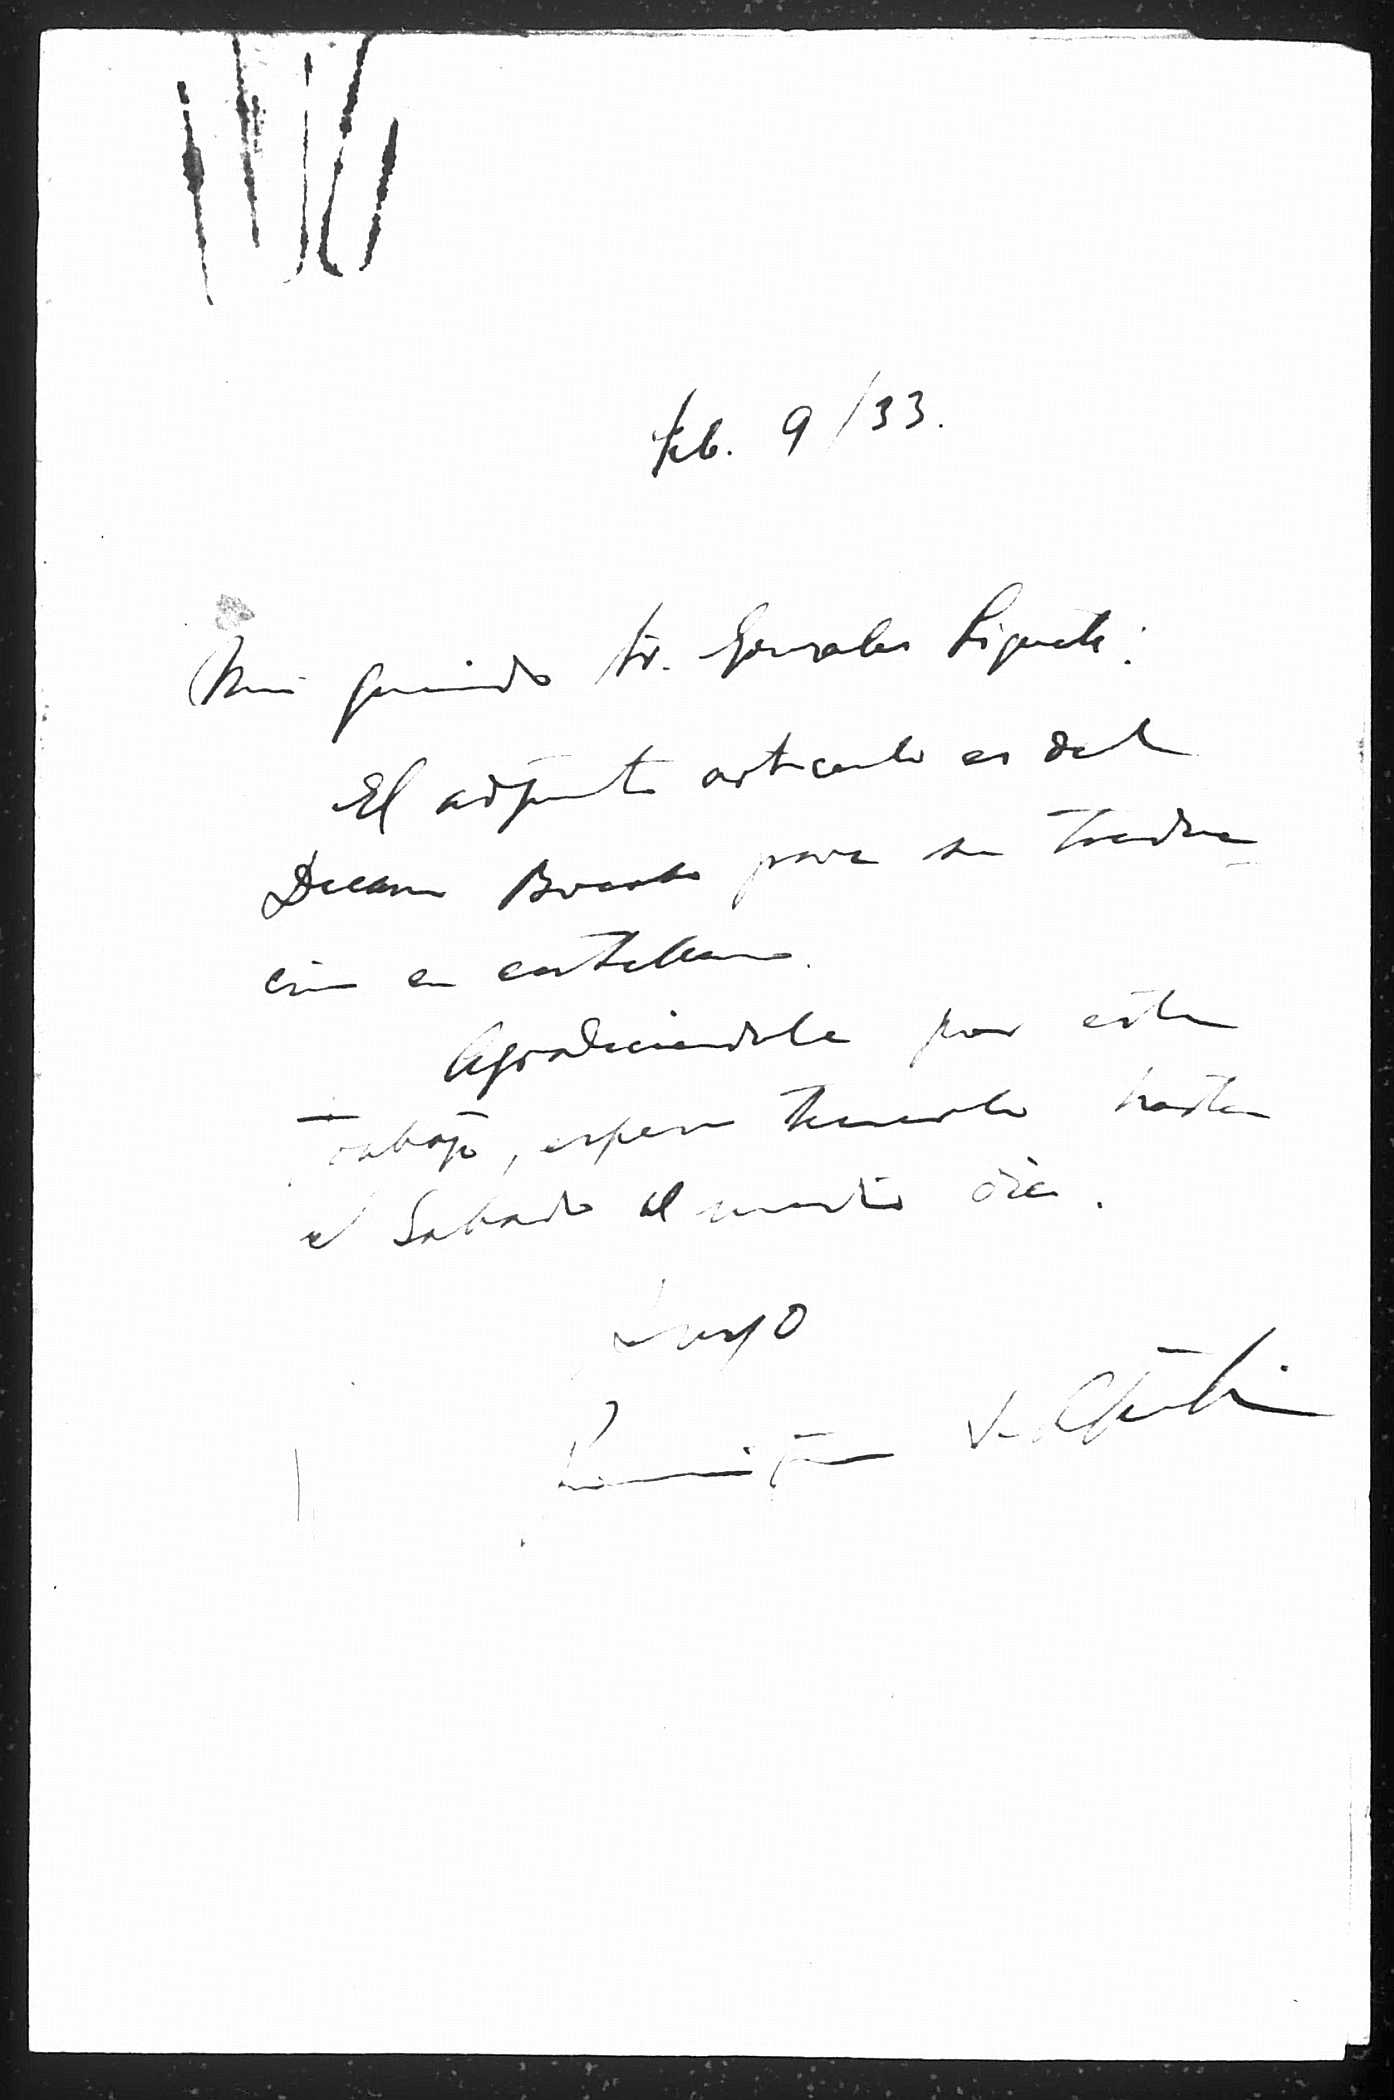 Feb. 9/33.
Mi querido Sr. Gonzalez Liquete:
El adjunto articulo es del
Decano Bocobo para su traduc-
cion en castellano.
Agradeciendole por este
trabajo, espero tenerlo hasta
el Sabado al medio dia.
Suyo